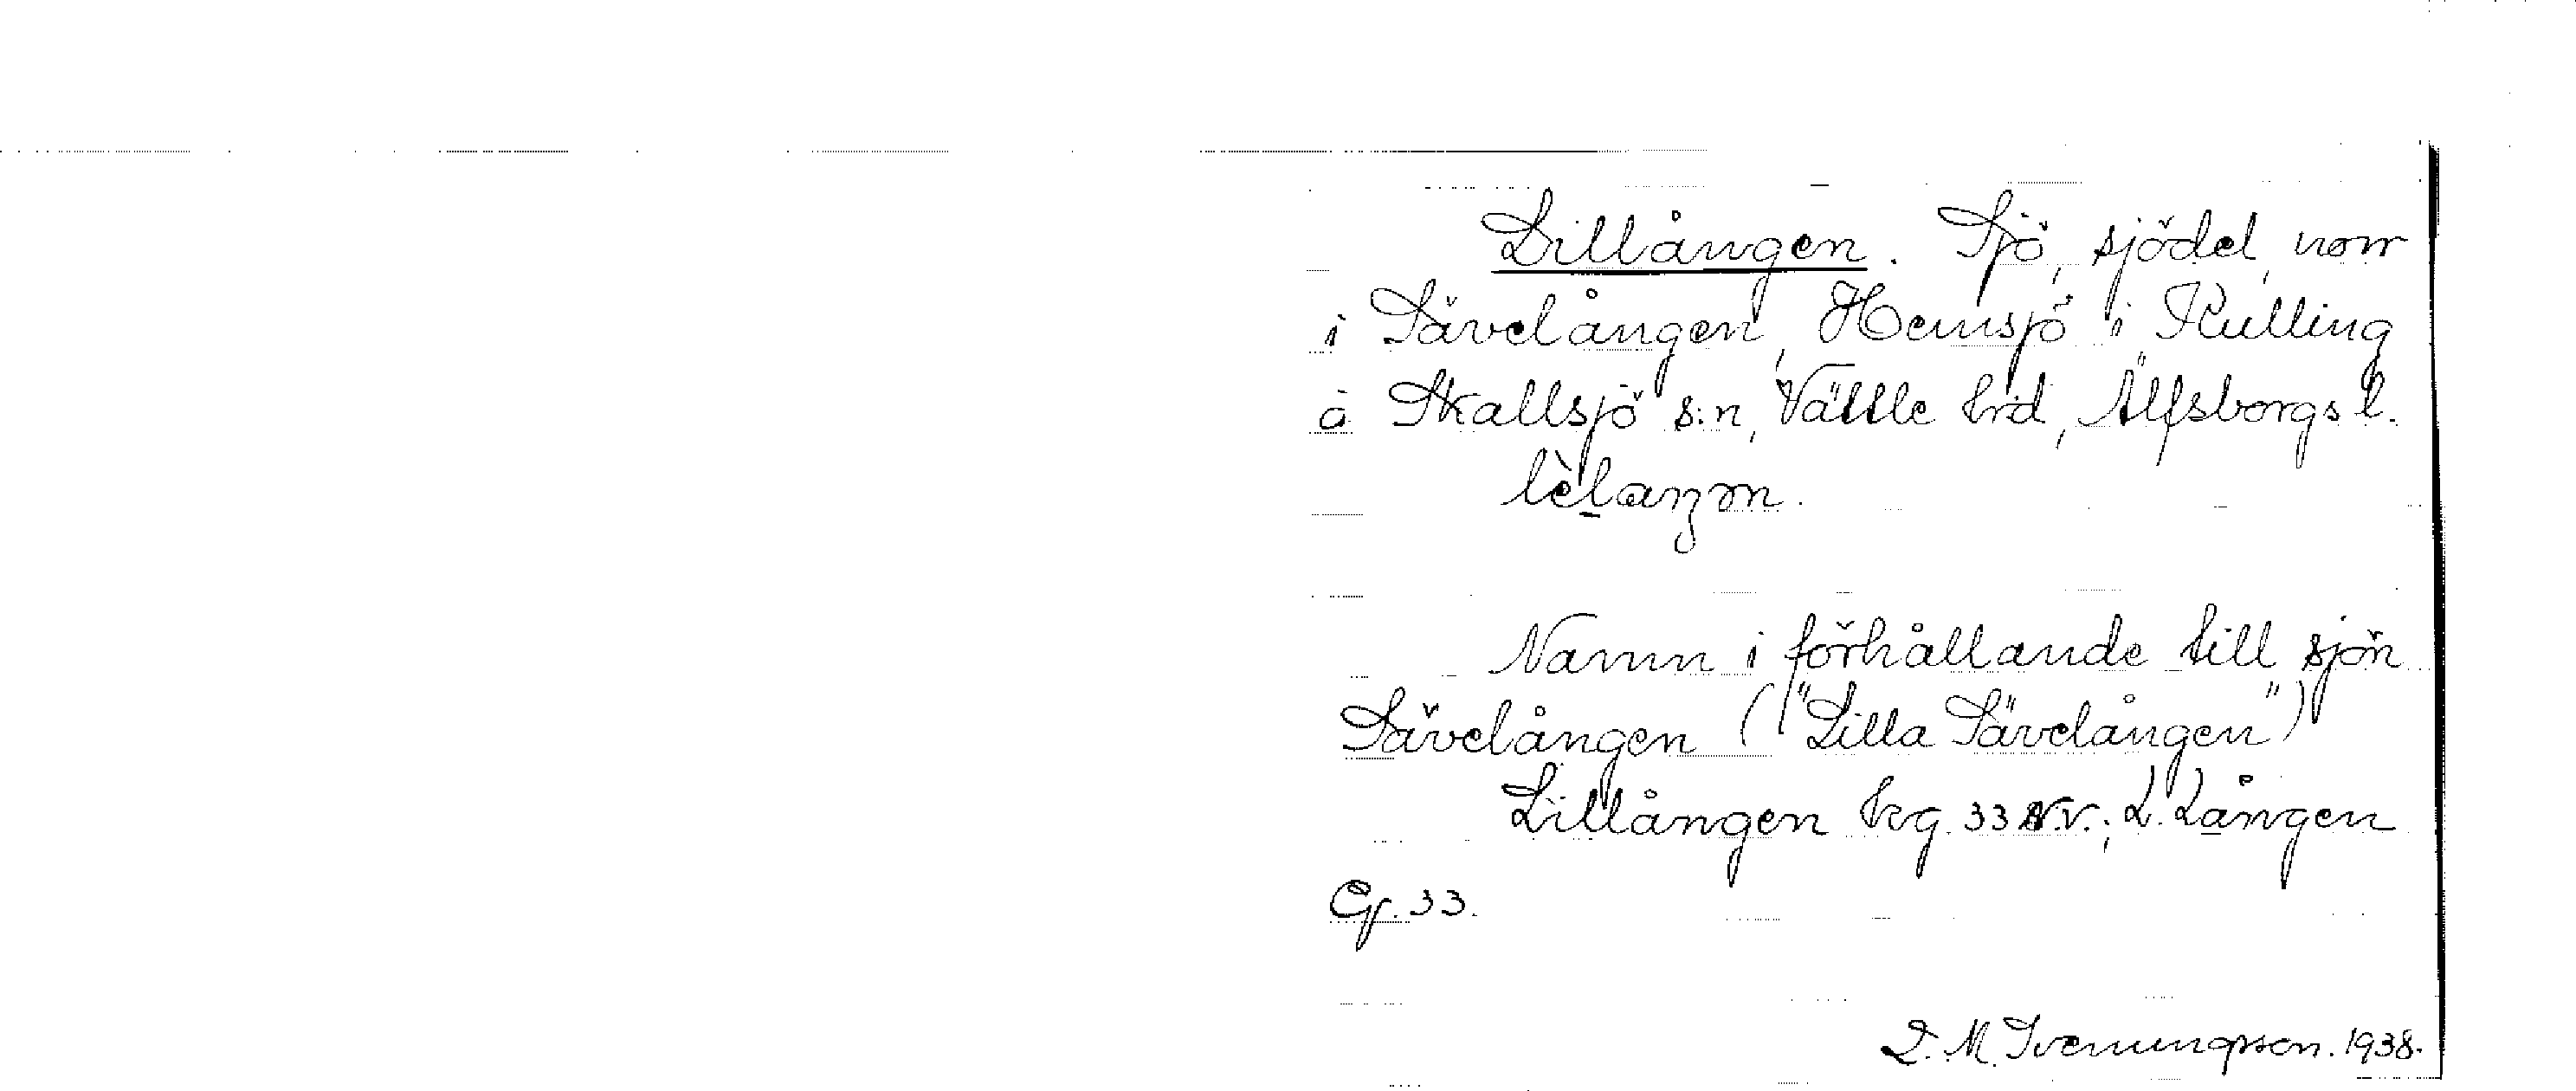 Lillången. Sjö, sjödel, norr
i Sävelången, Hemsjö i Kulling
å Skallsjö s:n, Vättle hrd, Älfsborgs l.
lèlaŋən.
Namn i förhållande till sjön
Sävelången ("Lilla Sävelången")
Lillången hkg. 33 N.V.; L. Lången
Gf. 33.
D. M. Ivenungsson. 1938.